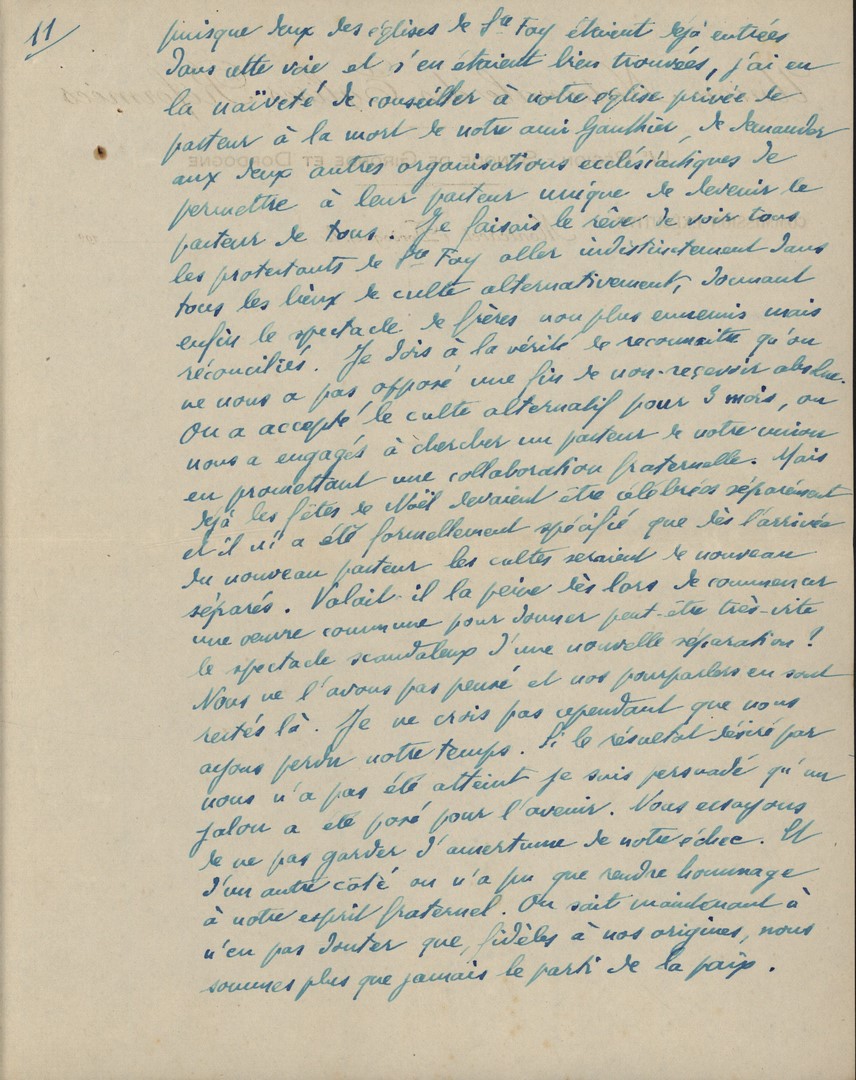 11
puisque deux des églises de Ste Foy étaient déjà entrées
dans cette voie et s'en étaient bien trouvées, j'ai eu
la naïveté de conseiller à notre église privée de
pasteur à la mort de notre ami Gauthier, de demander
aux deux autres organisations ecclésiastiques de
permettre à leur pasteur unique de devenir le
pasteur de tous. Je faisais le rêve de voir tous
les protestants de Ste Foy aller indistinctement dans
tous les lieux de culte alternativement, donnant
enfin le spectacle de frères non plus ennemis mais
réconciliés. Je dois à la vérité de reconnaître qu'on
ne nous a pas opposé une fin de non-recevoir absolue.
On a accepté le culte alternatif pour 3 mois, on
nous a engagés à chercher un pasteur de notre union
en promettant une collaboration fraternelle. Mais
déjà les fêtes de Noël devaient être célébrées séparément
et il n'a été formellement spécifié que dès l'arrivée
du nouveau pasteur les cultes seraient de nouveau
séparés. Valait-il la peine dès lors de commencer
une oeuvre commune pour donner peut-être très-vite
le spectacle scandaleux d'une nouvelle séparation ?
Nous ne l'avons pas pensé et nos pourparlers en sont
restés là. Je ne crois pas cependant que nous
ayons perdu notre temps. Si le résultat désiré par
nous n'a pas été atteint je suis persuadé qu'un
jalon a été posé pour l'avenir. Nous essayons
de ne pas garder d'amertume de notre échec. Et
d'un autre côté on n'a pu que rendre hommage
à notre esprit fraternel. On sait maintenant à
n'en pas douter que, fidèles à nos origines, nous
sommes plus que jamais le parti de la paix.